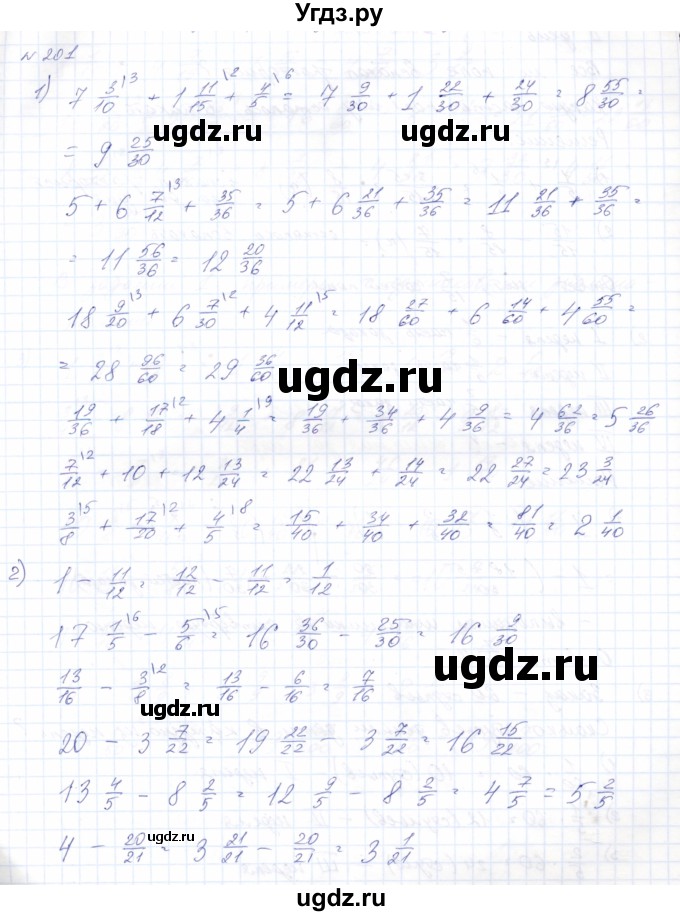 Угдз.ру
№ 201
1) 7 3/10\3 + 1 11/15\2 + 4/5\6 = 7 9/30 + 1 22/30 + 24/30 = 8 55/30 =
= 9 25/30
5 + 6 7/12\3 + 35/36 = 5 + 6 21/36 + 35/36 = 11 21/36 + 35/36 =
= 11 56/36 = 12 20/36
18 9/20\3 + 6 7/30\2 + 4 11/12\5 = 18 27/60 + 6 14/60 + 4 55/60 =
= 28 96/60 = 29 36/60
19/36 + 17/18\2 + 4 1/4\9 = 19/36 + 34/36 + 4 9/36 = 4 62/36 = 5 26/36
7/12\2 + 10 + 12 13/24 = 22 13/24 + 14/24 = 22 27/24 = 23 3/24
3/8\5 + 17/20\2 + 4/5\8 = 15/40 + 34/40 + 32/40 = 81/40 = 2 1/40
2) 1 - 11/12 = 12/12 - 11/12 = 1/12
17 1/5\6 - 5/6\5 = 16 36/30 - 25/30 = 16 9/30
13/16 - 3/8\2 = 13/16 - 6/16 = 7/16
20 - 3 7/22 = 19 22/22 - 3 7/22 = 16 15/22
13 4/5 - 8 2/5 = 12 9/5 - 8 2/5 = 4 7/5 = 5 2/5
4 - 20/21 = 3 21/21 - 20/21 = 3 1/21
ugdz.ru
ugdz.ru
ugdz.ru
ugdz.ru
ugdz.ru
ugdz.ru
ugdz.ru
ugdz.ru
ugdz.ru